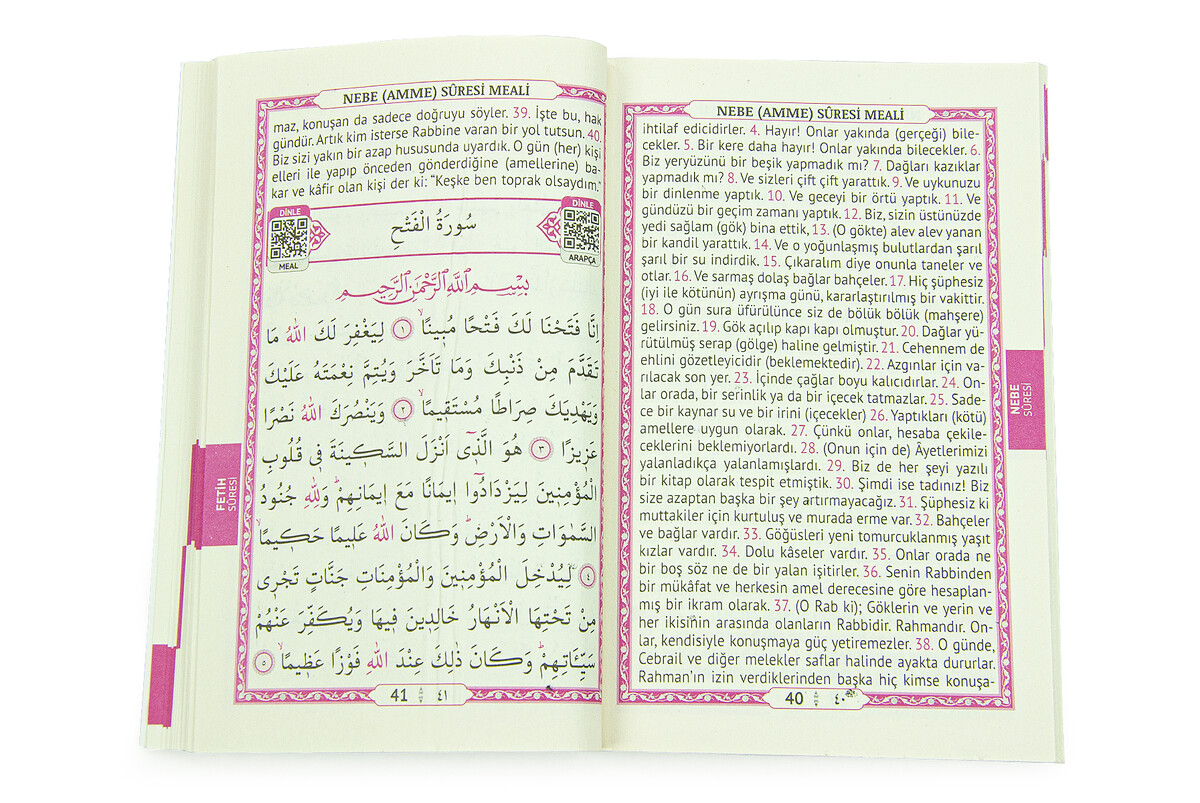 NEBE (AMME) SÛRESİ MEALİ
ihtilaf edicidirler. 4. Hayır! Onlar yakında (gerçeği) bile-
cekler. 5. Bir kere daha hayır! Onlar yakında bilecekler. 6.
Biz yeryüzünü bir beşik yapmadık mı? 7. Dağları kazıklar
yapmadık mı? 8. Ve sizleri çift çift yarattık. 9. Ve uykunuzu
bir dinlenme yaptık. 10. Ve geceyi bir örtü yaptık. 11. Ve
gündüzü bir geçim zamanı yaptık. 12. Biz, sizin üstünüzde
yedi sağlam (gök) bina ettik, 13. (O gökte) alev alev yanan
bir kandil yarattık. 14. Ve o yoğunlaşmış bulutlardan şarıl
şarıl bir su indirdik. 15. Çıkaralım diye onunla taneler ve
otlar. 16. Ve sarmaş dolaş bağlar bahçeler. 17. Hiç şüphesiz
(iyi ile kötünün) ayrışma günü, kararlaştırılmış bir vakittir.
18. O gün sura üfürülünce siz de bölük bölük (mahşere)
gelirsiniz. 19. Gök açılıp kapı kapı olmuştur. 20. Dağlar yü-
rütülmüş serap (gölge) haline gelmiştir. 21. Cehennem de
ehlini gözetleyicidir (beklemektedir). 22. Azgınlar için va-
rılacak son yer. 23. İçinde çağlar boyu kalıcıdırlar. 24. On-
lar orada, bir serinlik ya da bir içecek tatmazlar. 25. Sade-
ce bir kaynar su ve bir irini (içecekler) 26. Yaptıkları (kötü)
amellere uygun olarak. 27. Çünkü onlar, hesaba çekile-
ceklerini beklemiyorlardı. 28. (Onun için de) Âyetlerimizi
yalanladıkça yalanlamışlardı. 29. Biz de her şeyi yazılı
bir kitap olarak tespit etmiştik. 30. Şimdi ise tadınız! Biz
size azaptan başka bir şey artırmayacağız. 31. Şüphesiz ki
muttakiler için kurtuluş ve murada erme var. 32. Bahçeler
ve bağlar vardır. 33. Göğüsleri yeni tomurcuklanmış yaşıt
kızlar vardır. 34. Dolu kâseler vardır. 35. Onlar orada ne
bir boş söz ne de bir yalan işitirler. 36. Senin Rabbinden
bir mükâfat ve herkesin amel derecesine göre hesaplan-
mış bir ikram olarak. 37. (O Rab ki); Göklerin ve yerin ve
her ikisinin arasında olanların Rabbidir. Rahmandır. On-
lar, kendisiyle konuşmaya güç yetiremezler. 38. O günde,
Cebrail ve diğer melekler saflar halinde ayakta dururlar.
Rahman'ın izin verdiklerinden başka hiç kimse konuşa-
40 ٤٠
NEBE
SÛRESİ
NEBE (AMME) SÛRESİ MEALİ
maz, konuşan da sadece doğruyu söyler. 39. İşte bu, hak
gündür. Artık kim isterse Rabbine varan bir yol tutsun. 40.
Biz sizi yakın bir azap hususunda uyardık. O gün (her) kişi
elleri ile yapıp önceden gönderdiğine (amellerine) ba-
kar ve kâfir olan kişi der ki: "Keşke ben toprak olsaydım."
DİNLE
MEAL
سُورَةُ الْفَتْحِ
DİNLE
ARAPÇA
بِسْمِ اللّٰهِ الرَّحْمٰنِ الرَّحِيمِ
اِنَّا فَتَحْنَا لَكَ فَتْحًا مُبِينًاۙ ﴿١﴾ لِيَغْفِرَ لَكَ اللّٰهُ مَا
تَقَدَّمَ مِنْ ذَنْبِكَ وَمَا تَاَخَّرَ وَيُتِمَّ نِعْمَتَهُ عَلَيْكَ
وَيَهْدِيَكَ صِرَاطًا مُسْتَقِيمًاۙ ﴿٢﴾ وَيَنْصُرَكَ اللّٰهُ نَصْرًا
عَزِيزًا ﴿٣﴾ هُوَ الَّذِٓي اَنْزَلَ السَّكِينَةَ فِي قُلُوبِ
الْمُؤْمِنِينَ لِيَزْدَادُٓوا اِيمَانًا مَعَ اِيمَانِهِمْۜ وَلِلّٰهِ جُنُودُ
السَّمٰوَاتِ وَالْاَرْضِۜ وَكَانَ اللّٰهُ عَلِيمًا حَكِيمًاۙ
﴿٤﴾ لِيُدْخِلَ الْمُؤْمِنِينَ وَالْمُؤْمِنَاتِ جَنَّاتٍ تَجْرِي
مِنْ تَحْتِهَا الْاَنْهَارُ خَالِدِينَ فِيهَا وَيُكَفِّرَ عَنْهُمْ
سَيِّـَٔاتِهِمْۜ وَكَانَ ذٰلِكَ عِنْدَ اللّٰهِ فَوْزًا عَظِيمًاۙ ﴿٥﴾
41 ٤١
FETİH
SÛRESİ